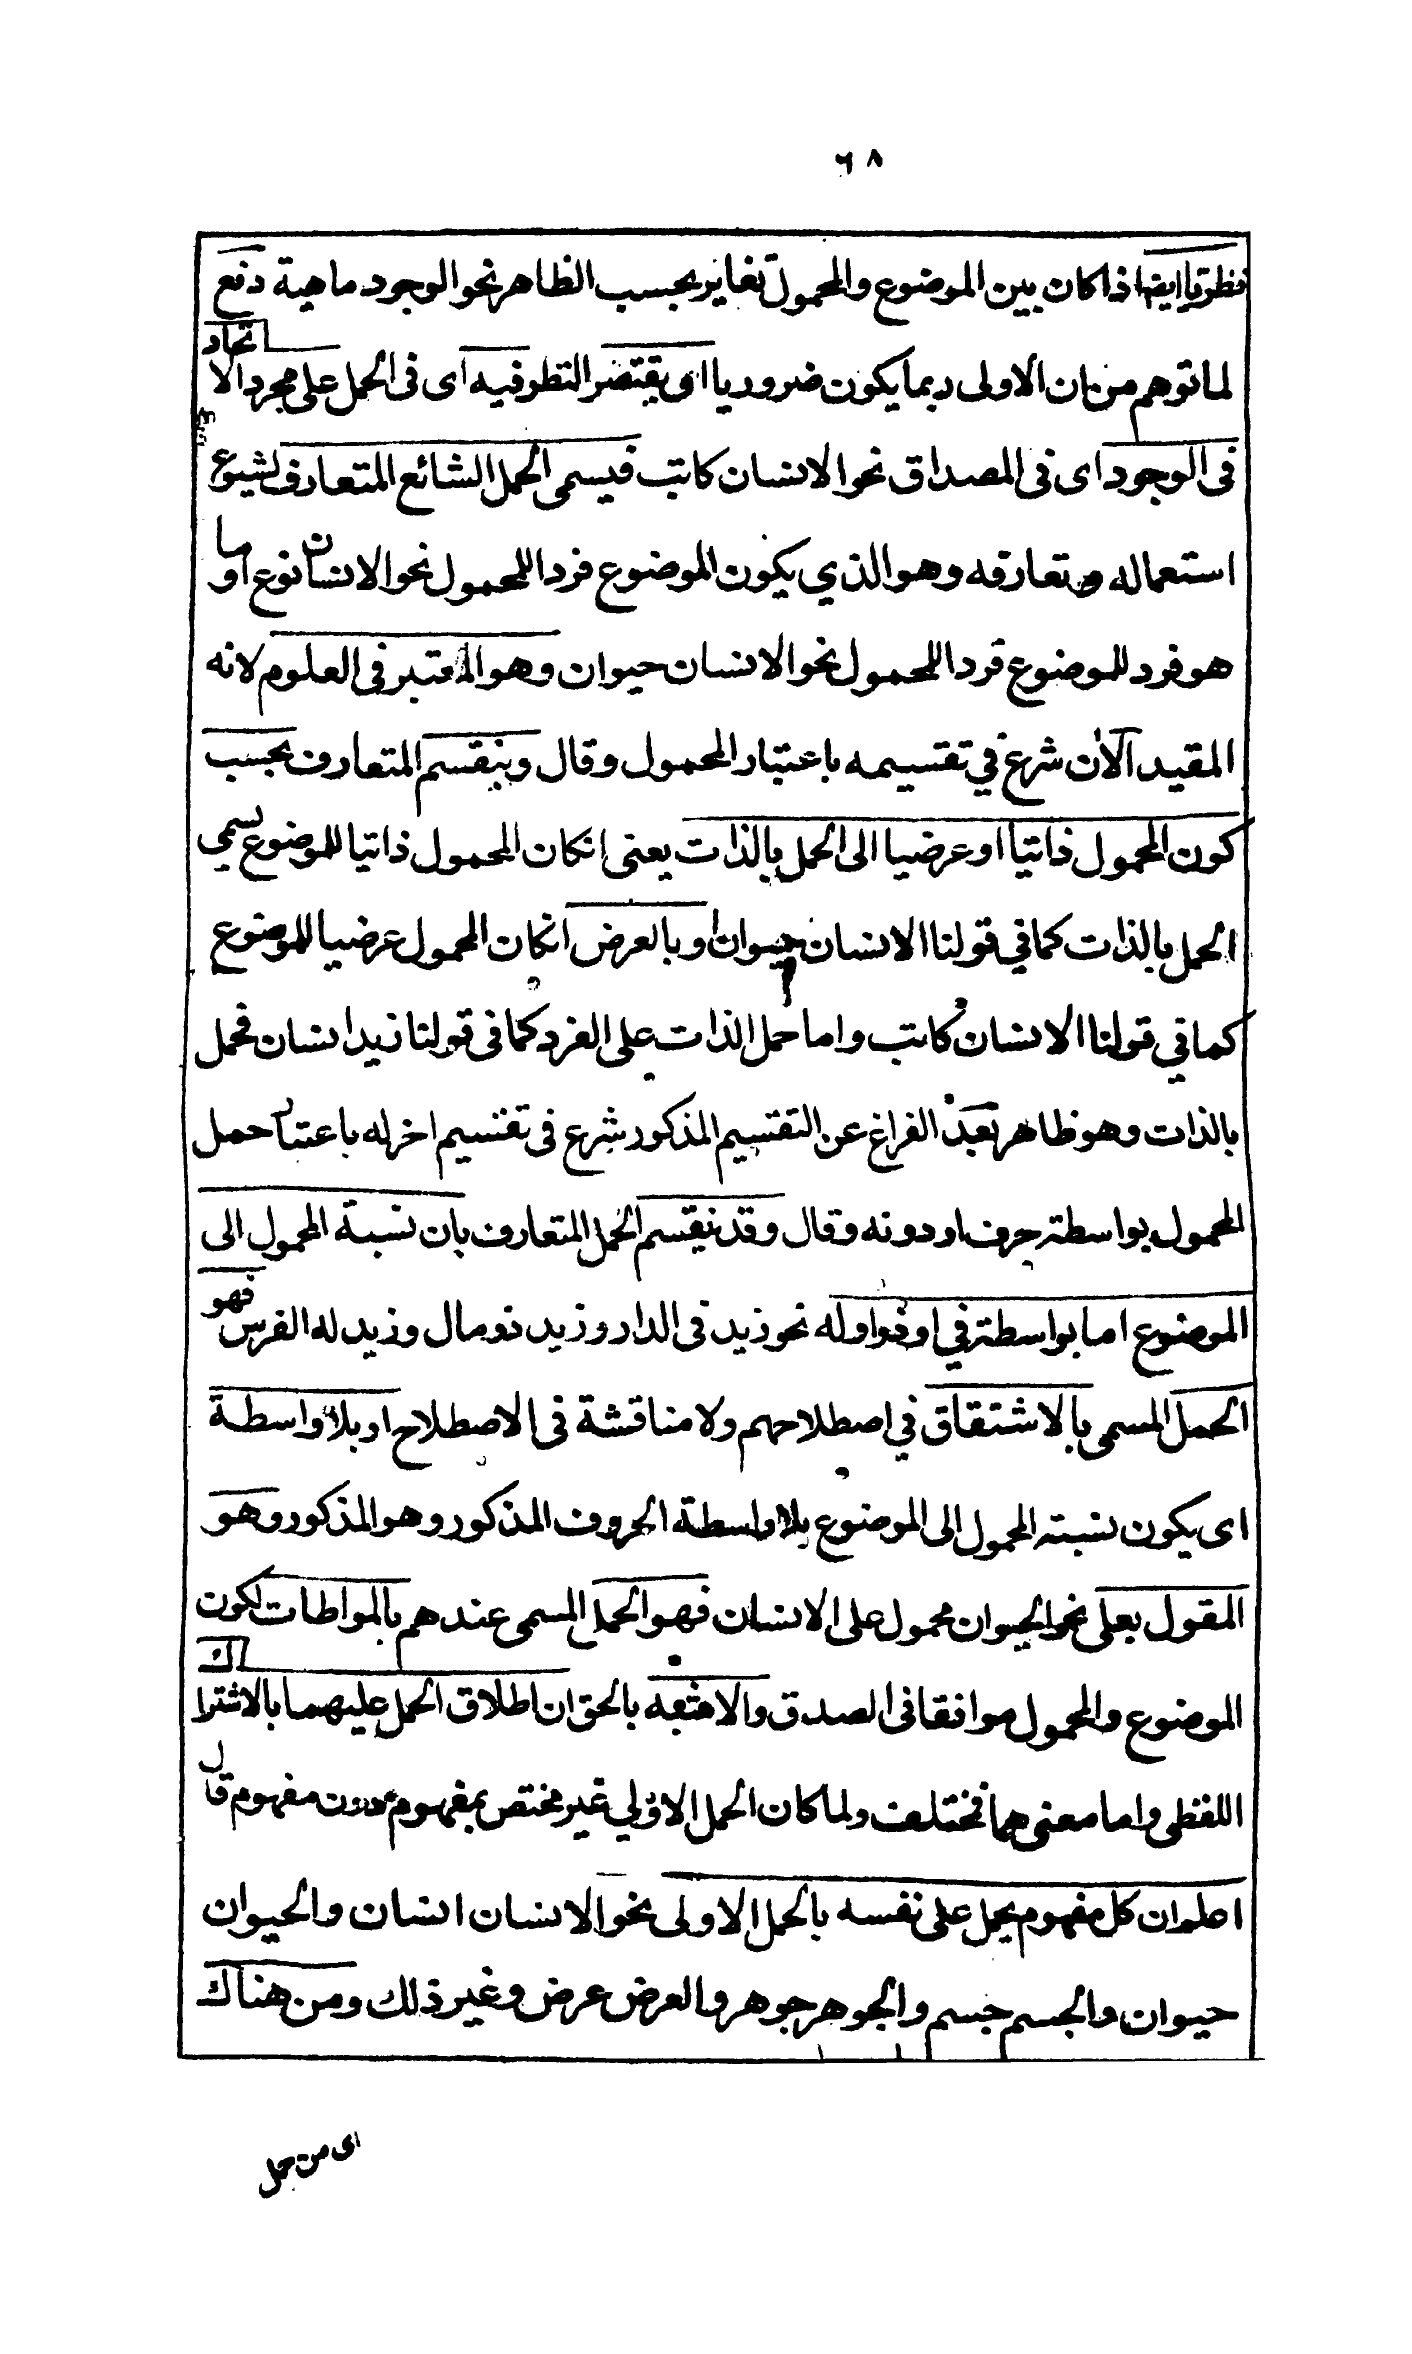 ٦٨
نظريا ايضا اذا كان بين الموضوع والمحمول تغاير بحسب الظاهر نحو الوجود ماهية دفع
لما توهم من ان الاولى ربما يكون ضروريا او يقتصر النظر فيه اى فى الحمل على مجرد الا
تحاد
فى الوجود اى فى المصداق نحو الانسان كاتب فيسمى الحمل الشائع المتعارف لشيوع
استعماله وتعارفه وهو الذي يكون الموضوع فردا للمحمول نحو الانسان نوع او ما
هو فرد للموضوع فردا للمحمول نحو الانسان حيوان وهو المعتبر فى العلوم لانه
المقيد الان شرع في تقسيمه باعتبار المحمول وقال وينقسم المتعارف بحسب
كون المحمول ذاتيا او عرضيا الى الحمل بالذات يعنى انكان المحمول ذاتيا للموضوع يسمى
الحمل بالذات كما في قولنا الانسان حيوان او بالعرض انكان المحمول عرضيا للموضوع
كما في قولنا الانسان كاتب واما حمل الذات على الفرد كما فى قولنا زيد انسان فحمل
بالذات وهو ظاهر بعد الفراغ عن التقسيم المذكور شرع فى تقسيم اخر له باعتبار حمل
المحمول بواسطة حرف او دونه وقال وقد ينقسم الحمل المتعارف بان نسبة المحمول الى
الموضوع اما بواسطة في او ذو او له نحو زيد فى الدار وزيد ذو مال وزيد له الفرس فهو
الحمل المسمى بالاشتقاق في اصطلاحهم ولا مناقشة فى الاصطلاح او بلا واسطة
اى يكون نسبته المحمول الى الموضوع بلا واسطة الحروف المذكور وهو المذكور وهو
المقول بعلى نحو الحيوان محمول على الانسان فهو الحمل المسمى عندهم بالمواطات لكون
الموضوع والمحمول موافقا فى الصدق والاشبه بالحق ان اطلاق الحمل عليهما بالاشترا
ك
اللفظى واما معنى هما فمختلف ولما كان الحمل الاولي غير مختص بمفهوم دون مفهوم قال
اعلم ان كل مفهوم يحمل على نفسه بالحمل الاولى نحو الانسان انسان والحيوان
حيوان والجسم جسم والجوهر جوهر والعرض عرض وغير ذلك ومن هناك
اى من حمل